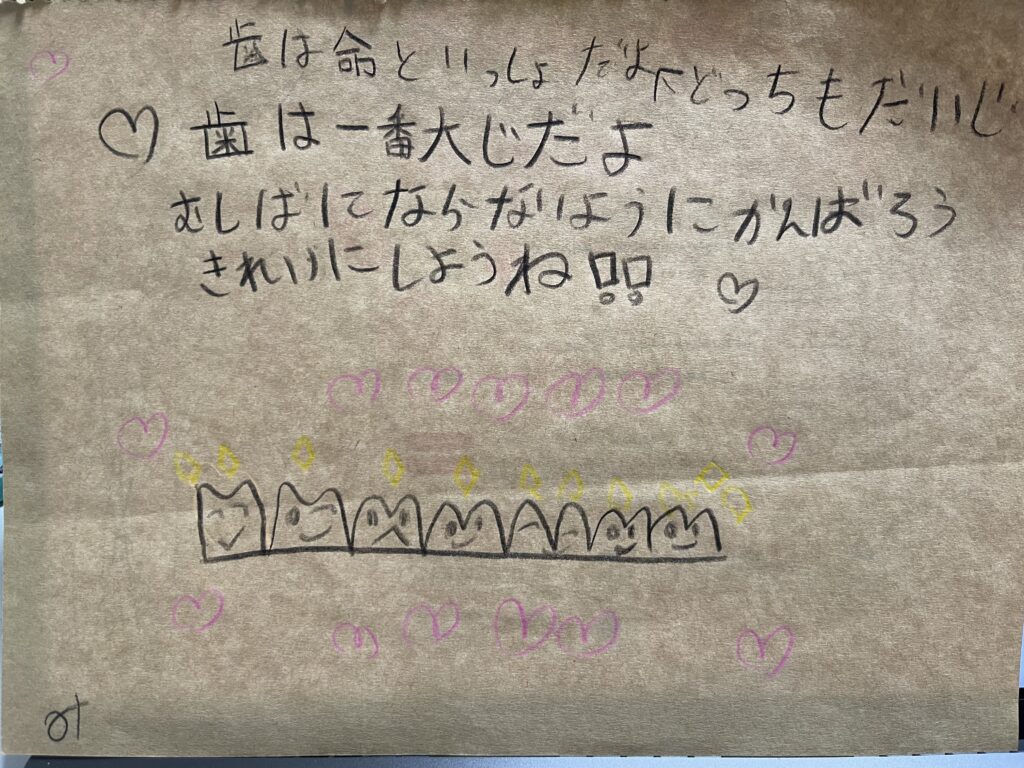 歯は命といっしょだよ下どっちもだいじ
歯は一番大じだよ
むしばにてならないようにがんばろう
きれいにしようね!!